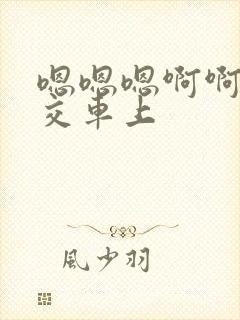 嗯嗯嗯啊啊
交車上
風少羽